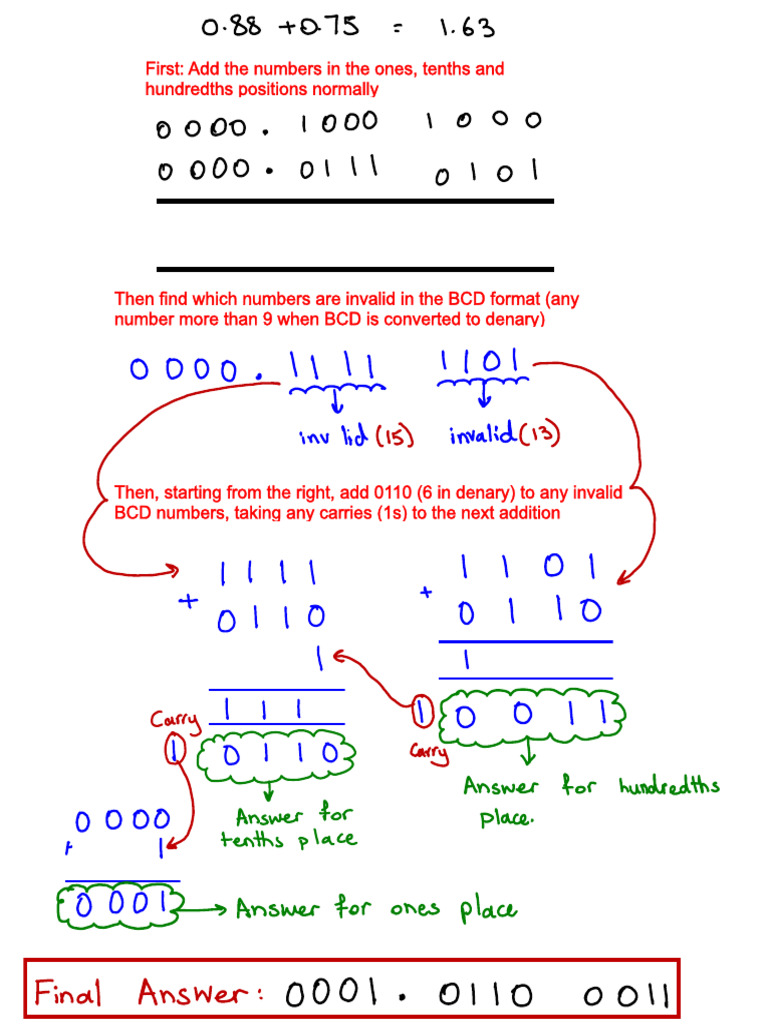 0.88 + 0.75 = 1.63
First: Add the numbers in the ones, tenths and
hundredths positions normally
0000. 1000 1000
0000. 0111 0101
Then find which numbers are invalid in the BCD format (any
number more than 9 when BCD is converted to denary)
0000. 1111 1101
inv lid (15) invalid (13)
Then, starting from the right, add 0110 (6 in denary) to any invalid
BCD numbers, taking any carries (1s) to the next addition
1111 1101
+ 0110 + 0110
1 1
111 1 0011
Carry Carry
1 0110
Answer for hundredths
place.
Answer for
tenths place
0000
+ 1
0001 Answer for ones place
Final Answer: 0001. 0110 0011